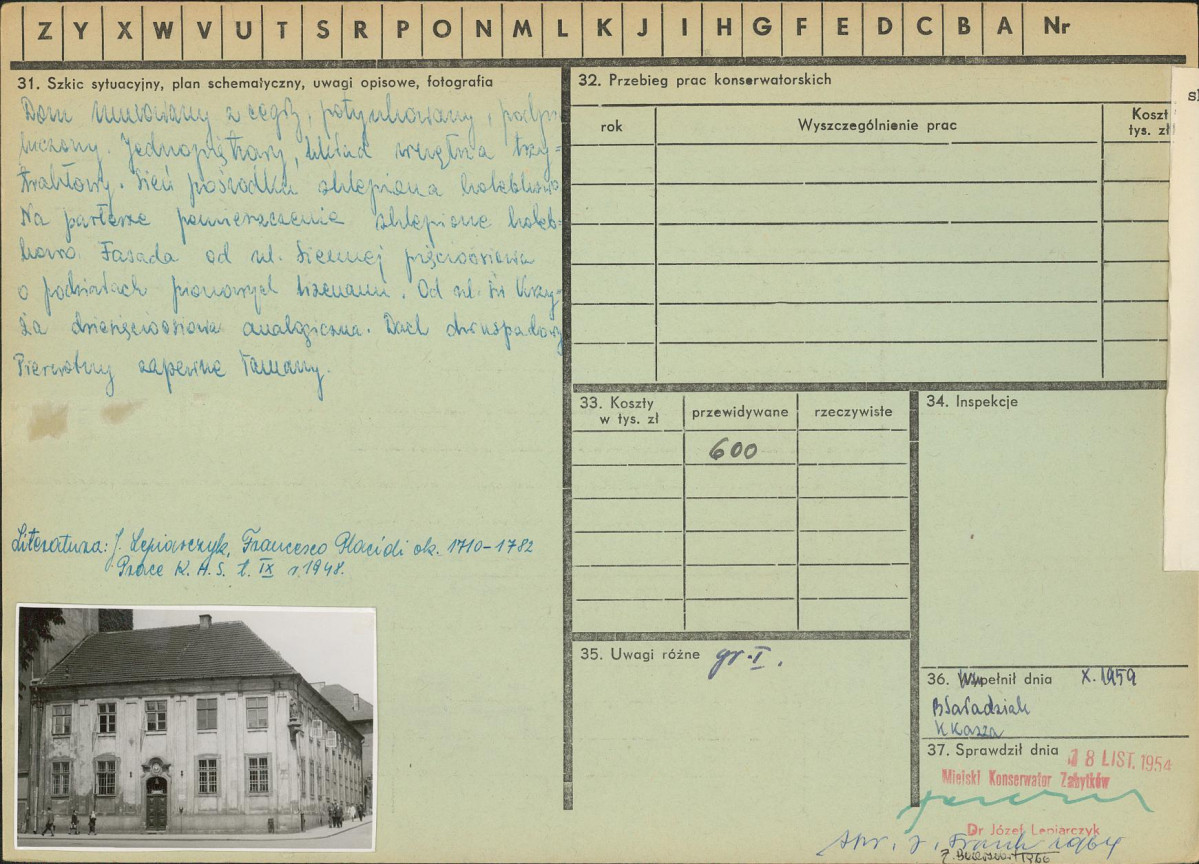 Z Y X W V U T S R P O N M L K J I H G F E D C B A Nr
31. Szkic sytuacyjny, plan schematyczny, uwagi opisowe, fotografia
Dom murowany z cegły, potynkowany, podpi-
wniczony. Jednopiętrowy, układ wnętrza trzy-
traktowy. Sień pośrodku sklepiona kolebkowo
Na parterze pomieszczenie sklepione koleb-
kowo. Fasada od ul. Siennej pięcioosiowa
o podziałach pionowych lizenami. Od ul. Św Krzy-
ża dziesięcioosiowa analogiczna. Dach dwuspadowy
Pierwotny zapewne łamany.
Literatura: J. Lepiarczyk, Francesco Placidi ok. 1710-1782
Prace K.H.S. t. IX r. 1948.
32. Przebieg prac konserwatorskich
rok
Wyszczególnienie prac
Koszt
tys. zł
33. Koszty
w tys. zł
przewidywane
rzeczywiste
600
34. Inspekcje
35. Uwagi różne gr. I.
36. Wypełnił dnia X. 1959
K Kasza
37. Sprawdził dnia
18 LIST. 1954
Miejski Konserwator Zabytków
Dr Józef Lepiarczyk
spr. J. Frank 1964
1966